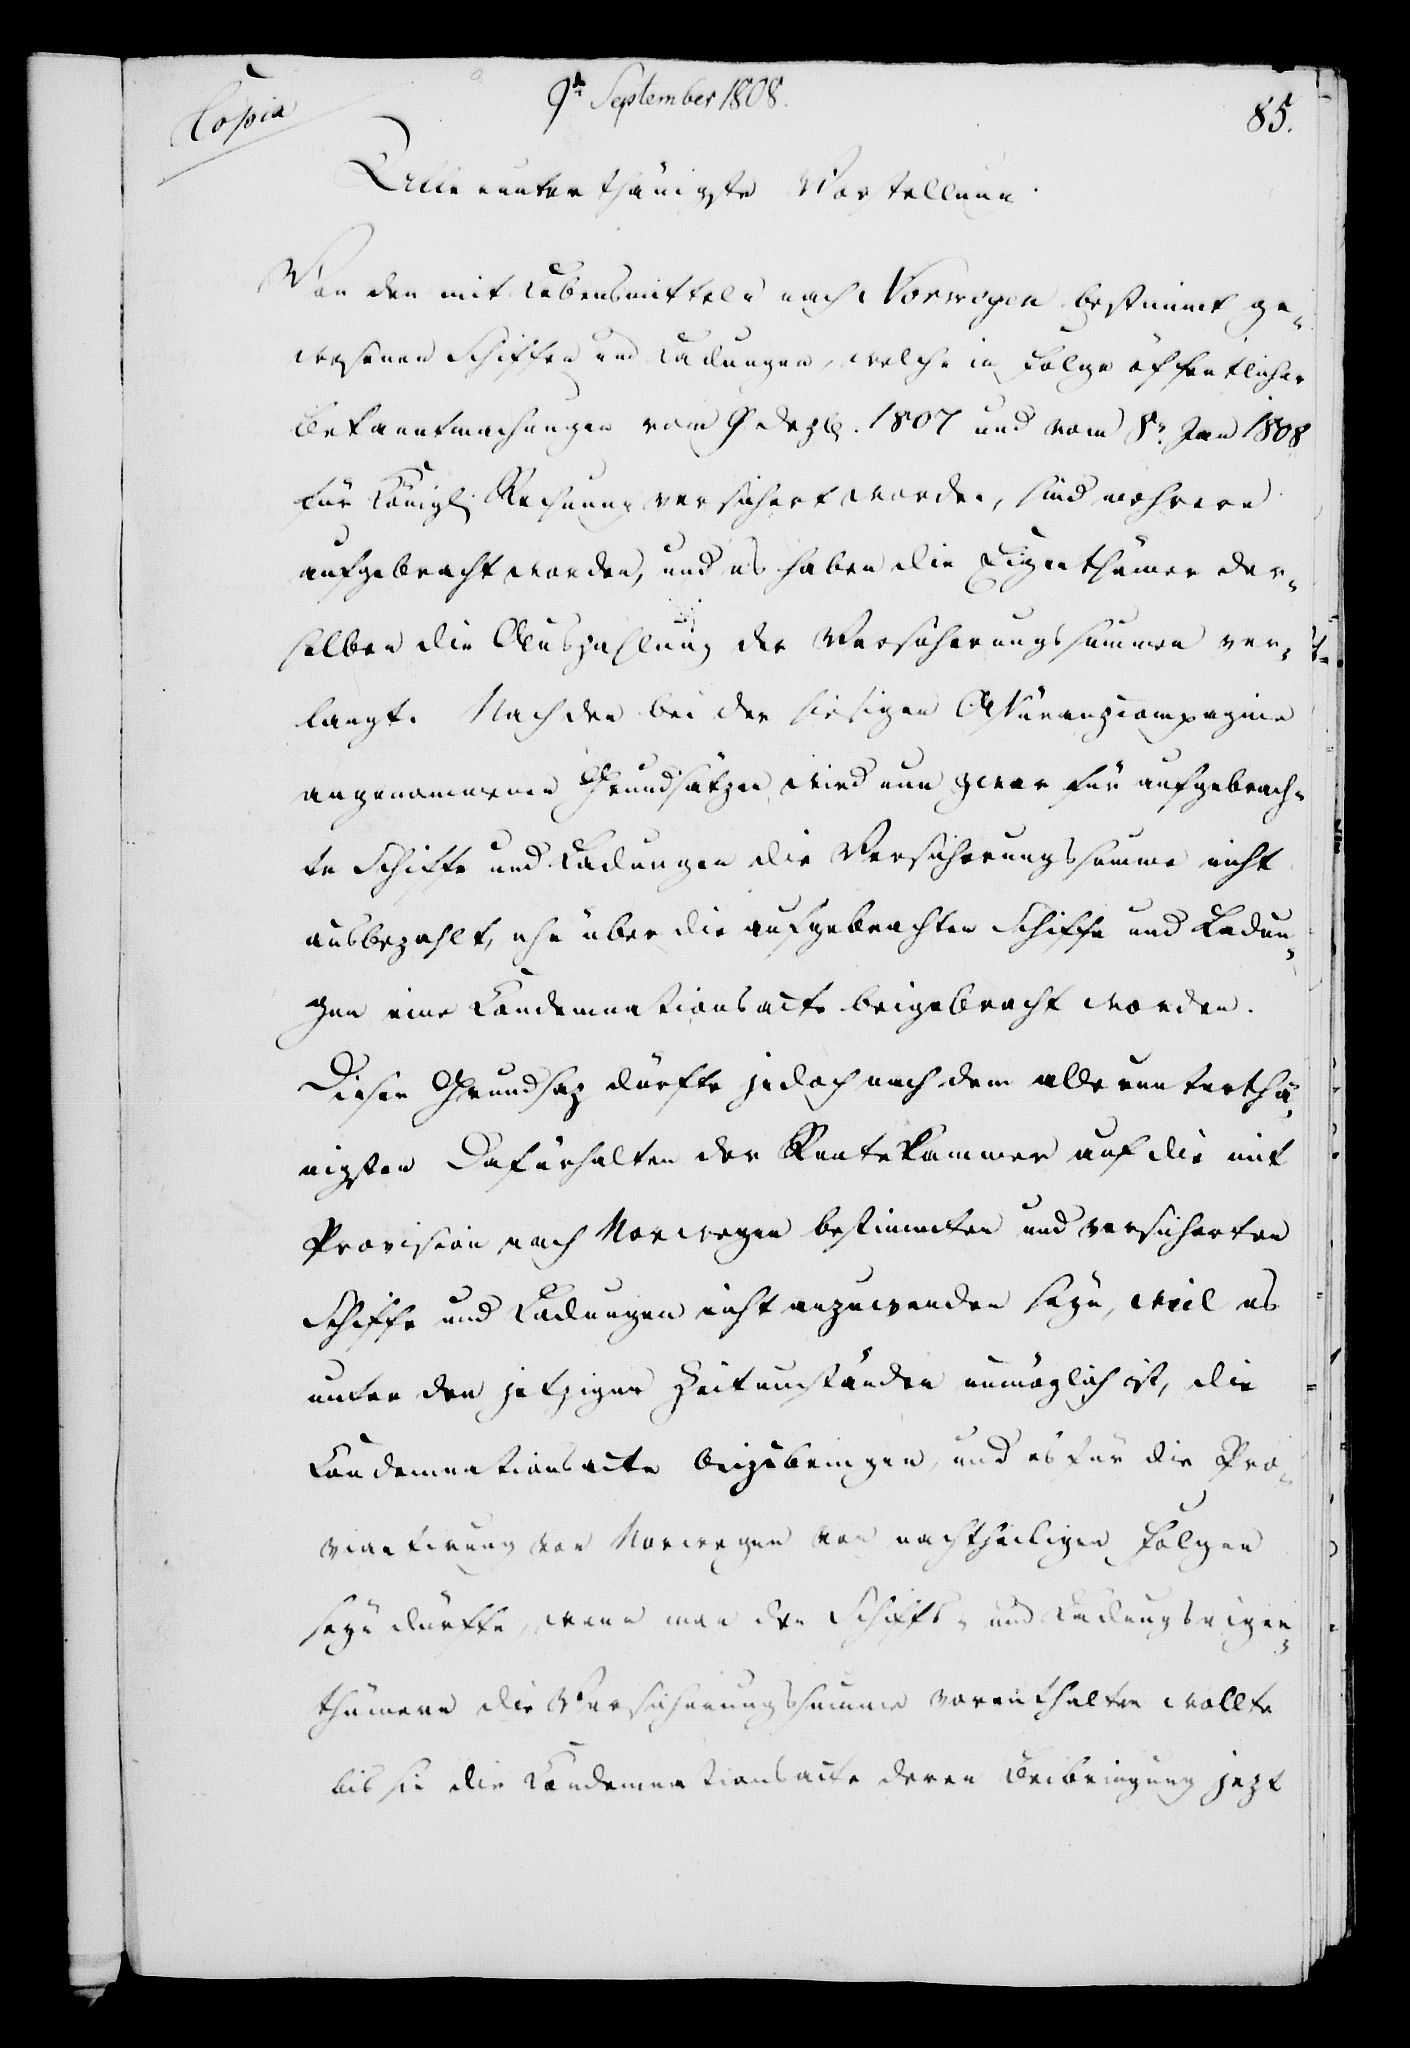 9t September 1808.
Copia
85.
Allerunterthänigste Vorstellung.
Von den mit Lebensmitteln nach Norwegen bestimmt ge-
wesenen Schiffen und Ladungen, welche in Folge öffentlicher
Bekanntmachungen vom 9 Dezb. 1807 und vom 8n. Jan 1808
für Königl. Rechnung versichert worden, sind mehrere
aufgebracht worden, und es haben die Eigenthümer der-
selben die Auszahlung der Versicherungssummen ver-
langt. Nach den bei der hiesigen Assuranzcompagnie
angenommenen Grundsätzen wird nun zwar für aufgebrach-
te Schiffe und Ladungen die Versicherungssumme nicht
ausbezahlt, ehe über die aufgebrachten Schiffe und Ladun-
gen eine Condemnationsacte beigebracht worden.
Dieser Grundsaz dürfte jedoch nach dem allerunterthä-
nigsten Dafürhalten der Rentekammer auf die mit
Provision nach Norwegen bestimmten und versicherten
Schiffe und Ladungen nicht anzuwenden seyn, weil es
unter den jetzigen Zeitumständen unmöglich ist, die
Condemnationsacte beizubringen, und es für die Pro-
viantirung von Norwegen von nachtheiligen Folgen
seyn dürfte, wenn man den Schiffs- und Ladungseigen-
thümern die Versicherungssumme vorenthalten wollte
bis sie die Condemnationsacte deren Beibringung jezt